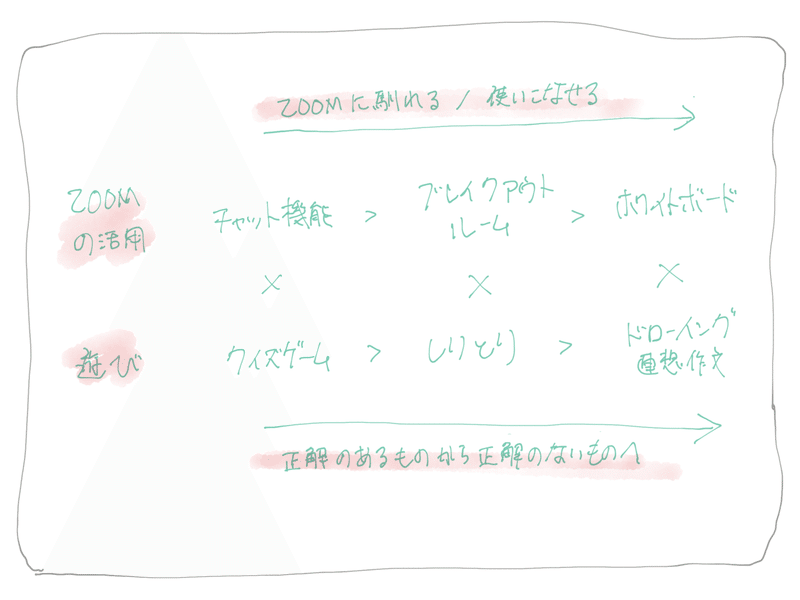 ZOOMに馴れる / 使いこなせる
ZOOM
の活用
チャット機能 > ブレイクアウト
ルーム > ホワイトボード
× × ×
遊び
クイズゲーム > しりとり > ドローイング
画想作文
正解のあるものから正解のないものへ